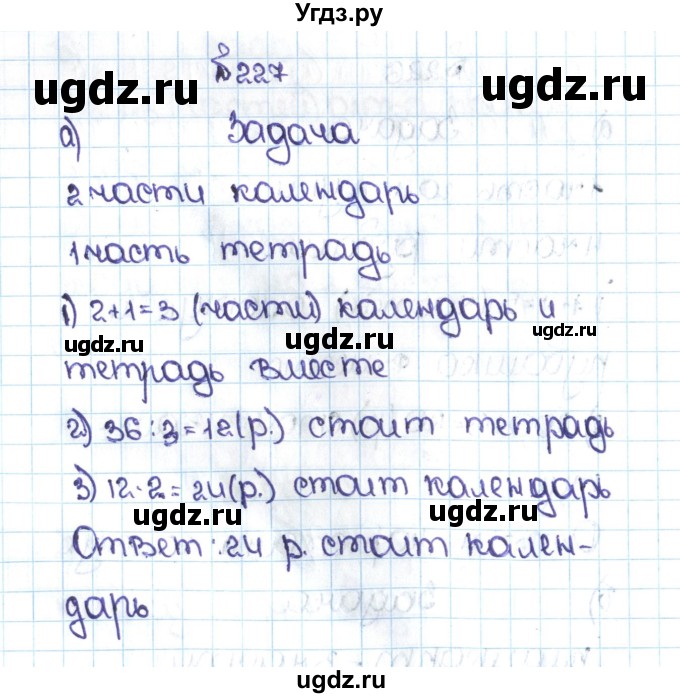 Угдз.ру
№227
ugdz.ru
ugdz.ru
а) Задача
2 части календарь
1 часть тетрадь
1) 2+1=3 (части) календарь и
ugdz.ru
ugdz.ru
тетрадь вместе
2) 36:3=12(р.) стоит тетрадь
ugdz.ru
ugdz.ru
3) 12·2=24(р.) стоит календарь
ugdz.ru
ugdz.ru
Ответ: 24 р. стоит кален-
дарь
ugdz.ru